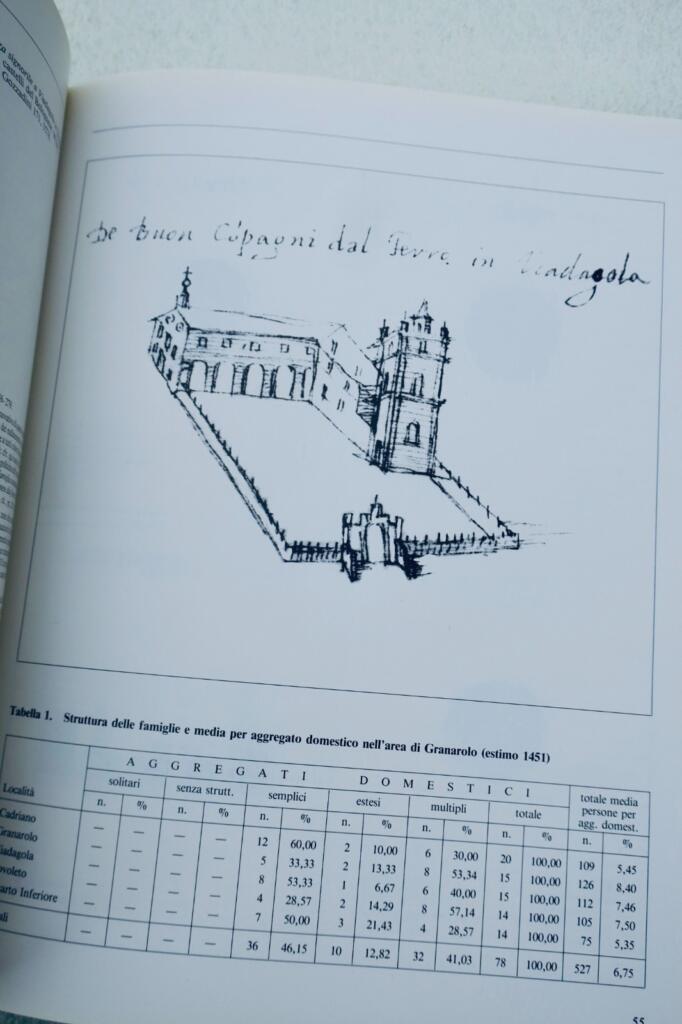 castelli del
Gozzadini 171
De Buon Cōpagni dal Ferro in Viadagola
Tabella 1. Struttura delle famiglie e media per aggregato domestico nell'area di Granarolo (estimo 1451)
AGGREGATI DOMESTICI totale media
Località solitari senza strutt. semplici estesi multipli totale persone per
agg. domest.
n. % n. % n. % n. % n. % n. % n. %
Cadriano — — — — 12 60,00 2 10,00 6 30,00 20 100,00 109 5,45
ranarolo — — — — 5 33,33 2 13,33 8 53,34 15 100,00 126 8,40
iadagola — — — — 8 53,33 1 6,67 6 40,00 15 100,00 112 7,46
ovoleto — — — — 4 28,57 2 14,29 8 57,14 14 100,00 105 7,50
arto Inferiore — — — — 7 50,00 3 21,43 4 28,57 14 100,00 75 5,35
ali — — — — 36 46,15 10 12,82 32 41,03 78 100,00 527 6,75
55